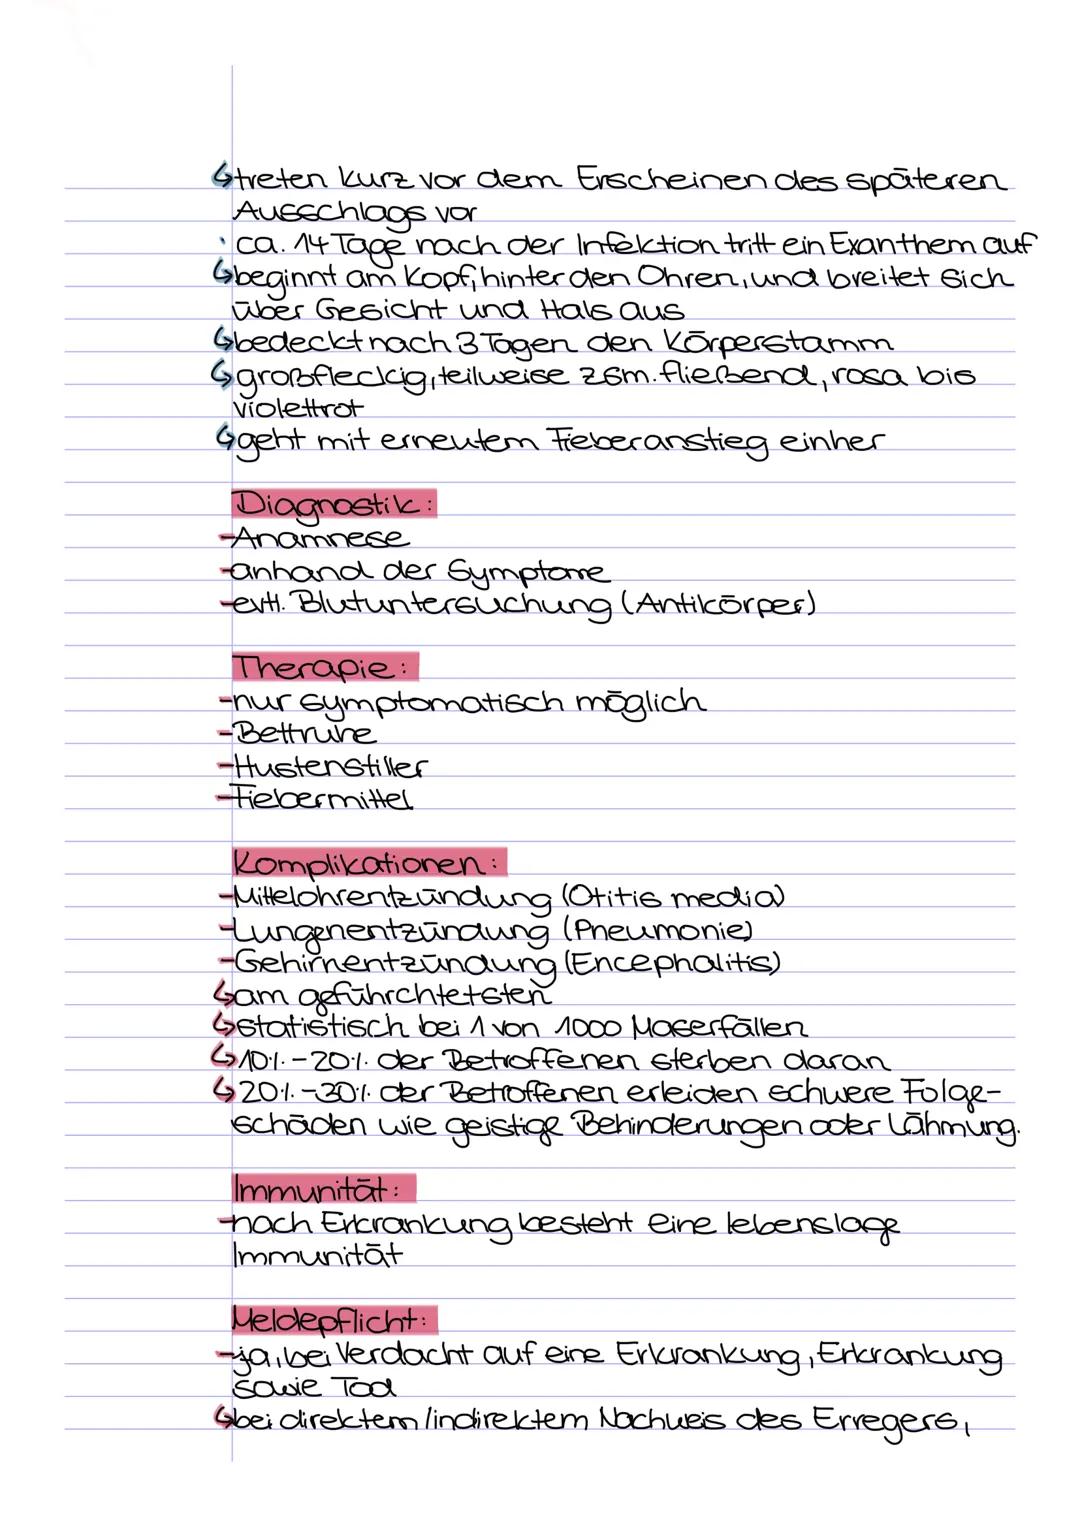 ↳treten kurz vor dem Erscheinen des späteren
Ausschlags vor
· ca. 14 Tage nach der Infektion tritt ein Exanthem auf
↳beginnt am Kopf, hinter den Ohren, und breitet sich
über Gesicht und Hals aus
↳bedeckt nach 3 Tagen den Körperstamm
↳großfleckig, teilweise zsm. fließend, rosa bis
violettrot
↳geht mit erneutem Fieberanstieg einher
Diagnostik:
-Anamnese
-anhand der Symptome
-evtl. Blutuntersuchung (Antikörper)
Therapie:
-nur symptomatisch möglich
-Bettruhe
-Hustenstiller
-Fiebermittel
Komplikationen:
-Mittelohrentzündung (Otitis media)
-Lungenentzündung (Pneumonie)
-Gehirnentzündung (Encephalitis)
↳am geführchtetsten
↳statistisch bei 1 von 1000 Maserfällen
↳10%-20% der Betroffenen sterben daran
↳20%-30% der Betroffenen erleiden schwere Folge-
schäden wie geistige Behinderungen oder Lähmung.
Immunität:
-nach Erkrankung besteht eine lebenslage
Immunität
Meldepflicht:
-ja, bei Verdacht auf eine Erkrankung, Erkrankung
sowie Tod
↳bei direktem/indirektem Nachweis des Erregers,